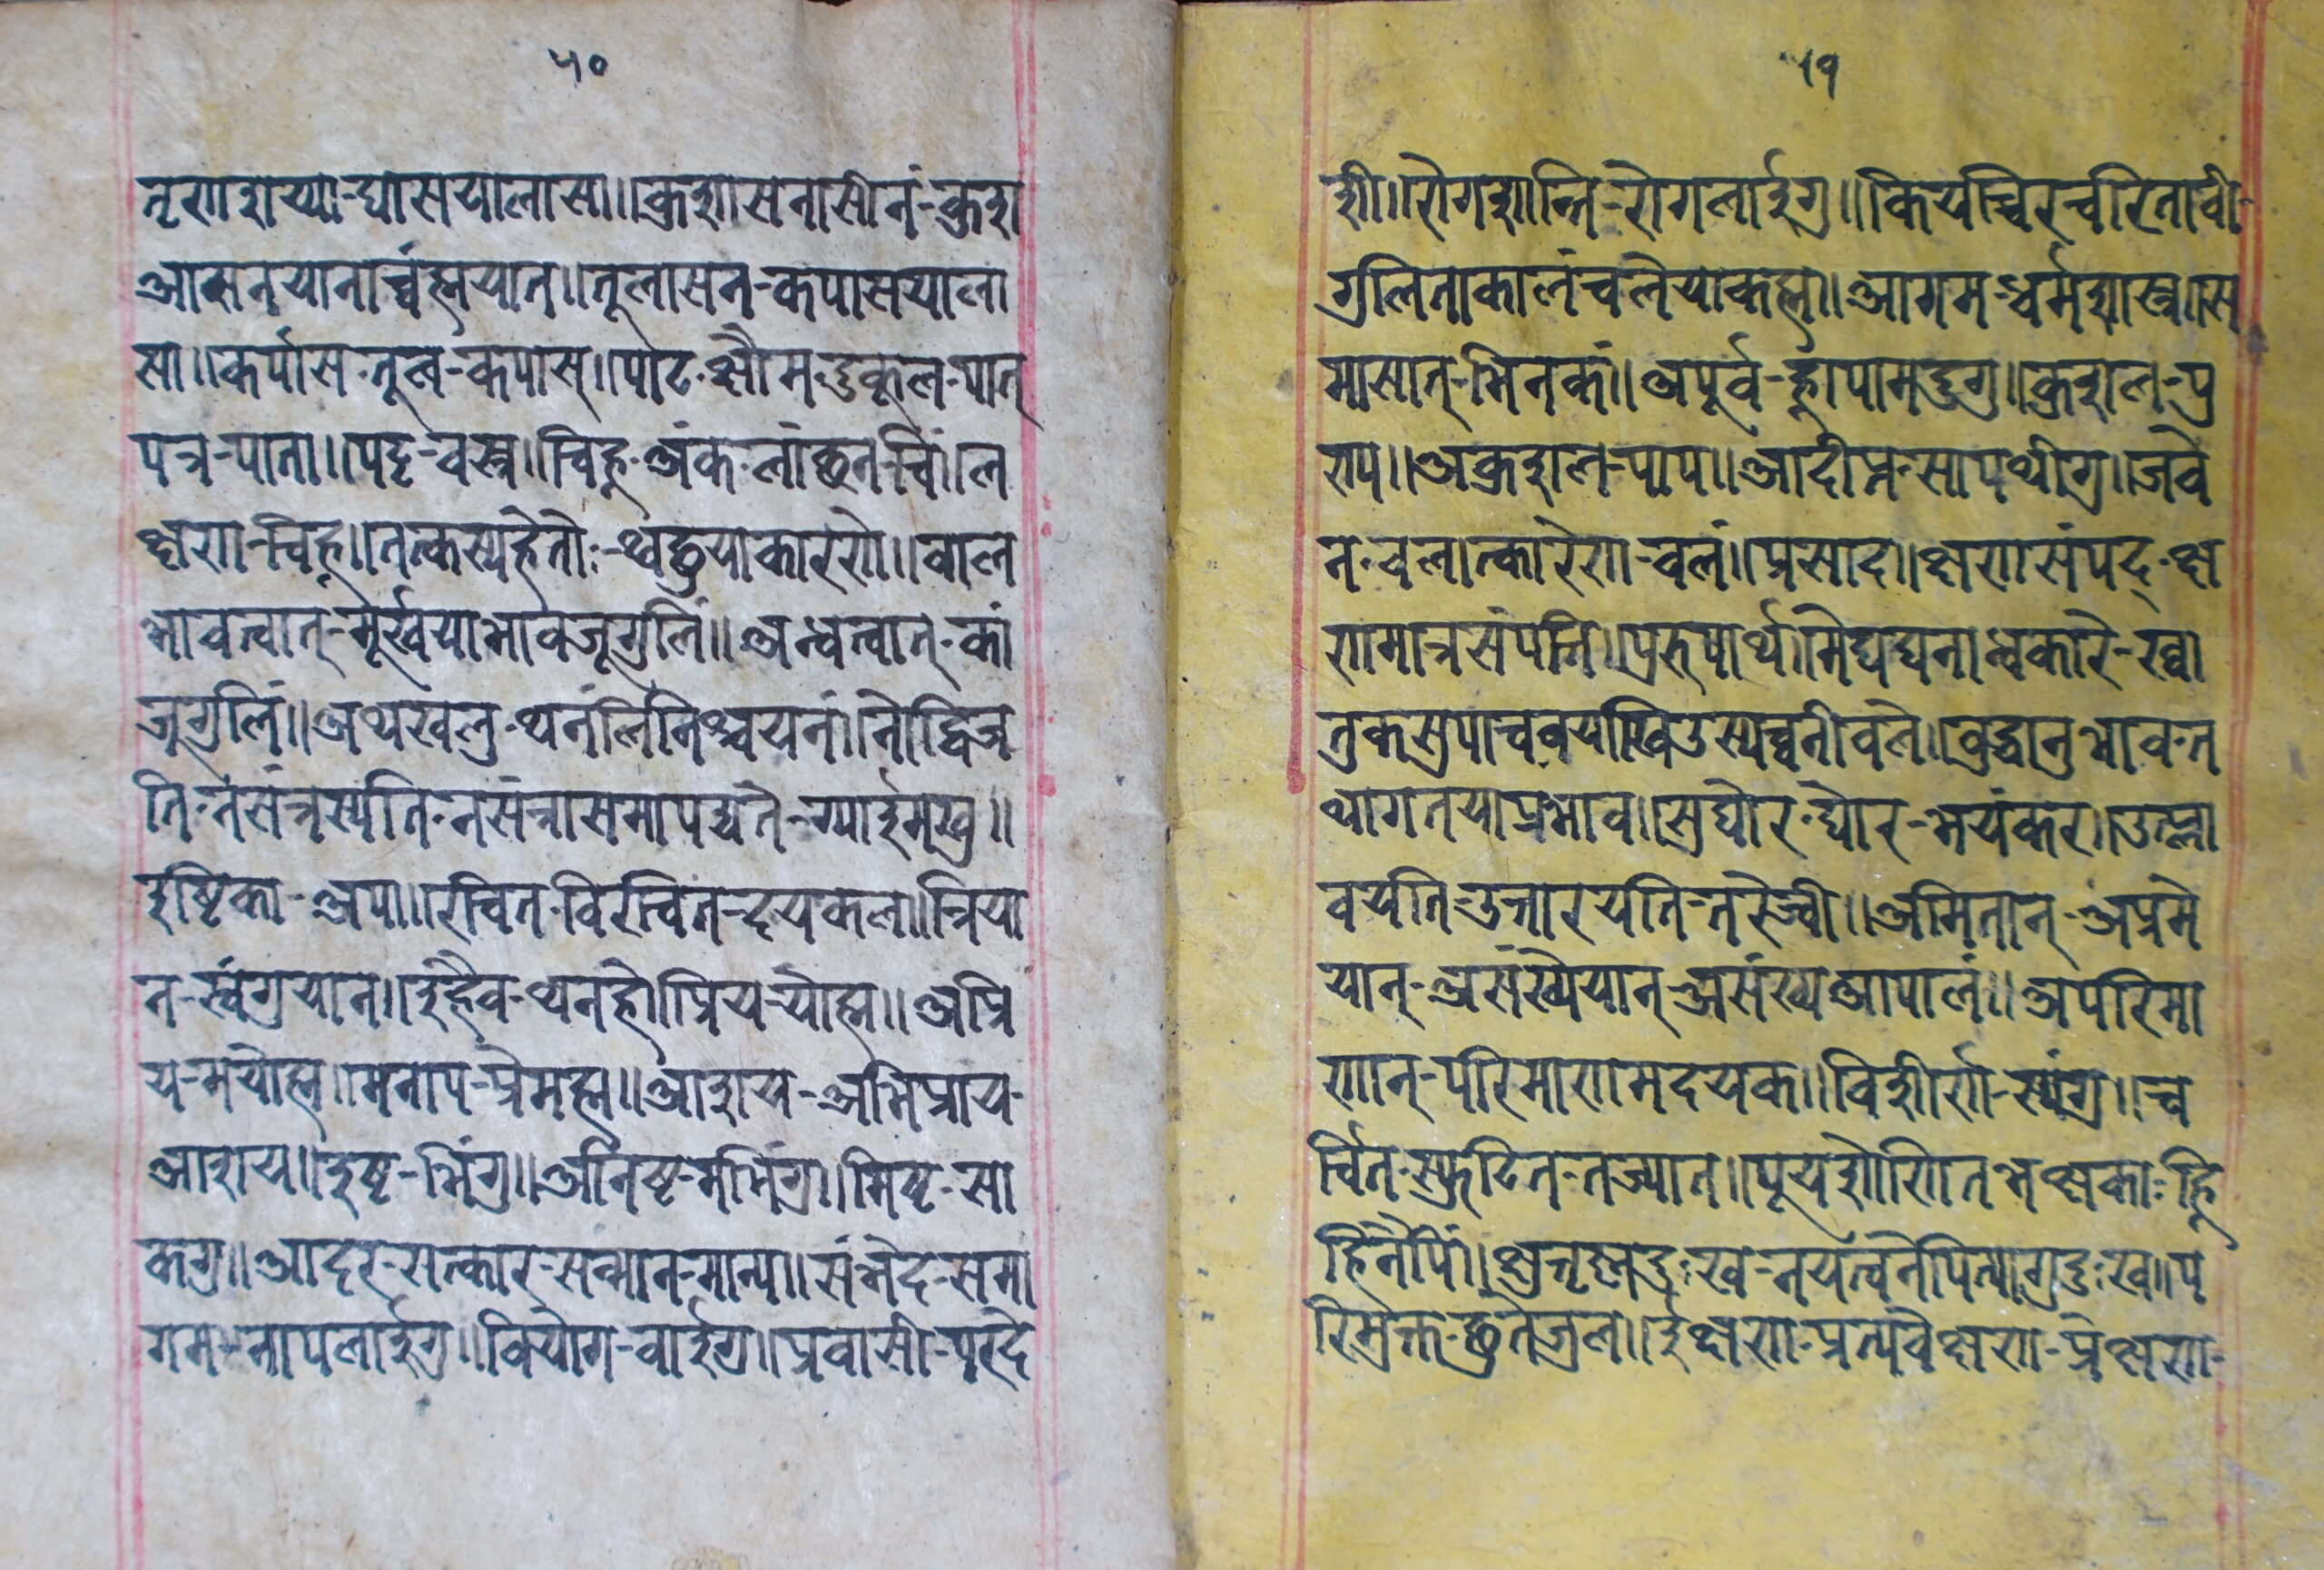 ५०
तृणशय्या-घासयालासा॥कुशासनासीनं-कुश
आसनयानाच्वंह्मयात॥तूलासन-कपासयाला
सा॥कर्पास-तूल-कपास्॥पाट-क्षौम-दुकूल-पात्
पत्र-पाता॥पट्ट-वस्त्र॥चिह्न-अंक-लांछन-चिं॥ल
क्षण-चिह्न॥तत्कस्यहेतोः-थ्वछुयाकारणे॥वाल
भावत्वात्-मूर्खयाभावजूगुलिं॥अन्धत्वात्-कां
जूगुलिं॥अथखलु-थनंलिनिश्चयनं॥नोद्विज
ति-नसंत्रस्यति-नसंत्रासमापद्यते-ग्याईमखु॥
इष्टिका-अपा॥रचित-विरचित-दयकल॥त्रिया
न-स्वंगुयान॥इहैव-थ्वनहे॥प्रिय-योह्म॥अप्रि
य-मयोह्म॥मनाप-प्रेमह्म॥आशय-अभिप्राय-
आशय॥इष्ट-भिंगु॥अनिष्ट-मभिंगु॥मिष्ट-सा
कगु॥आदर-सत्कार-सन्मान-मान्य॥संभेद-समा
गम-नापलाईगु॥वियोग-वाईगु॥प्रवासी-परदे
५१
शी॥रोगशान्ति-रोगलाईगु॥कियच्चिरचरितावी-
गुलिताकालंचलेयाकह्म॥आगम-धर्मशास्त्र॥स
मासात्-भिनकं॥अपूर्व-ह्नापामदुगु॥कुशल-पु
ण्य॥अकुशल-पाप॥आदीप्त-सापथीगु॥जवे
न-वलात्कारेण-वलं॥प्रसाद॥क्षणसंपद्-क्ष
णमात्रसंपत्ति॥पुरुषार्थ॥मेघघनान्धकारे-ख्वा
तुकसुपाचंवयाखिउस्यच्वनीवले॥बुद्धानुभाव-त
थागतयाप्रभाव॥सुघोर-घोर-भयंकर॥उत्प्ला
वयति-उत्तारयति-तरेज्वी॥अमितान्-अप्रमे
यान्-असंख्येयान्-असंख्यआपालं॥अपरिमा
णान्-परिमाणमदयक॥विशीर्ण-स्यंगु॥च
र्चित-स्फुटित-तज्यात॥पूयशोणितभक्षकाः-हि
हिंनेपिं॥क्षुत्तृष्णदुःख-नयत्वनेपित्यागुदुःख॥प
रिमुक्त-छुतेजुल॥ईक्षण-प्रत्यवेक्षण-प्रेक्षण-